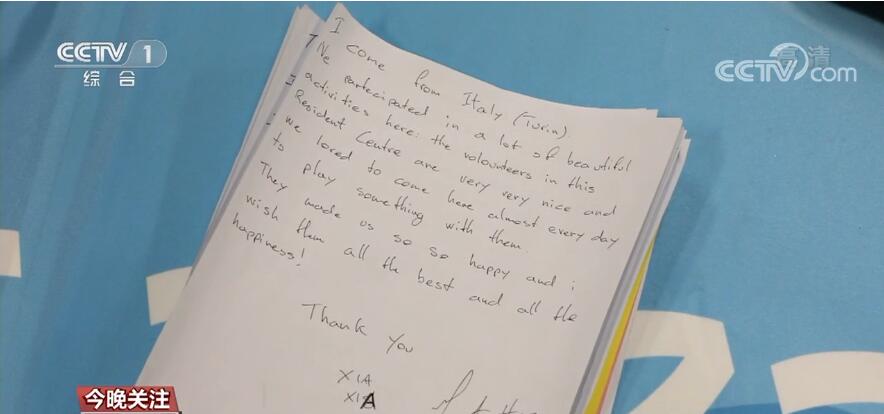 CCTV 1
综合
高清
CCTV.com
I come from Italy (Turin)
We partecipated in a lot of beautiful
activities here: the volounteers in this
Resident Centre are very very nice and
we loved to come here almost every day
to play something with them.
They made us so so happy and i
wish them all the best and all the
happiness!
Thank you
XIA
XIA
今晚关注